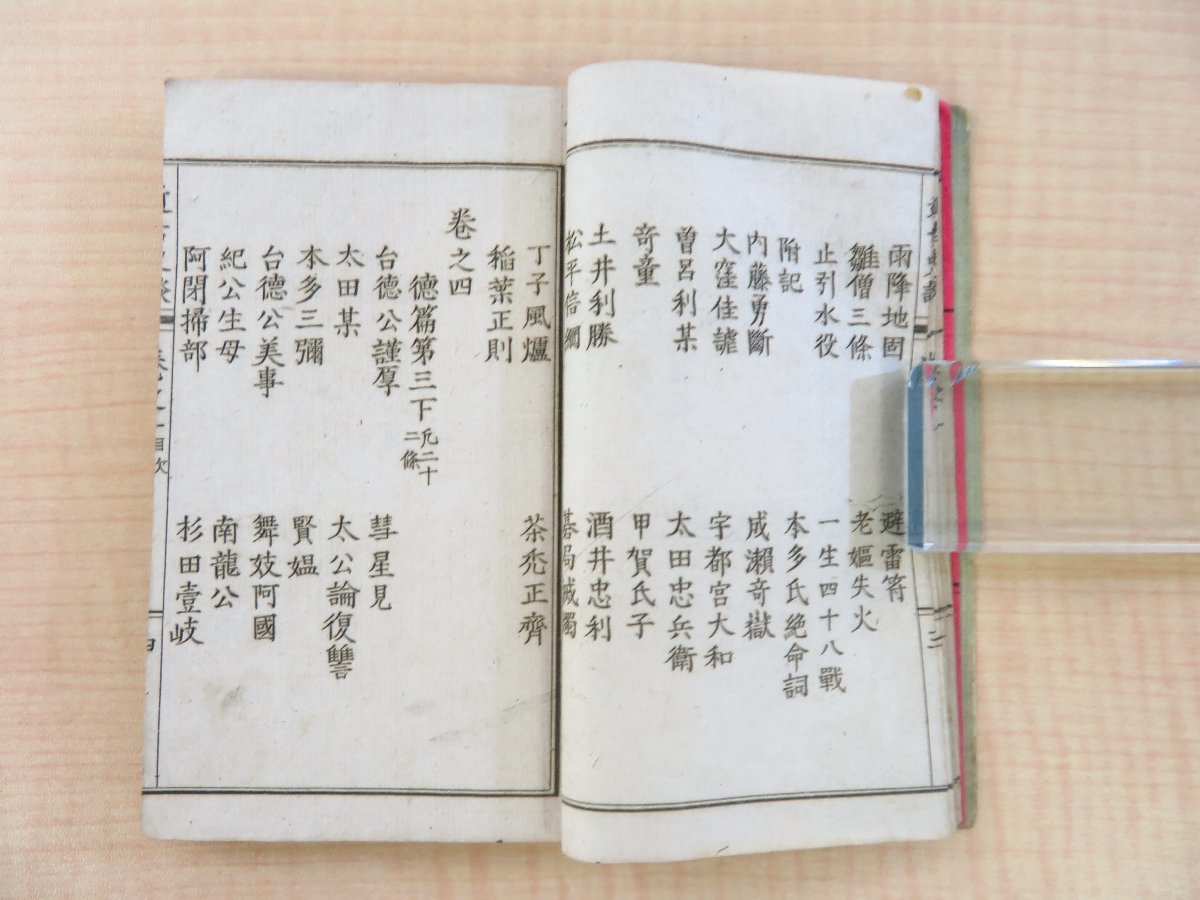 雨降地固
避雷符
雛僧三條
老嫗失火
止引水役
一生四十八戰
附記
本多氏絶命詞
内藤勇斷
成瀬奇獄
大窪佳謔
宇都宮大和
曽呂利某
太田忠兵衛
奇童
甲賀氏子
土井利勝
酒井忠利
松平信綱
丁子風爐
茶禿正齊
稲葉正則
卷之四
德篇第三下 凢二十二條
台德公謹厚
彗星見
太田某
太公論復讐
本多三彌
賢媼
台德公美事
舞妓阿國
紀公生母
南龍公
阿閉掃部
杉田壹岐
目次
四